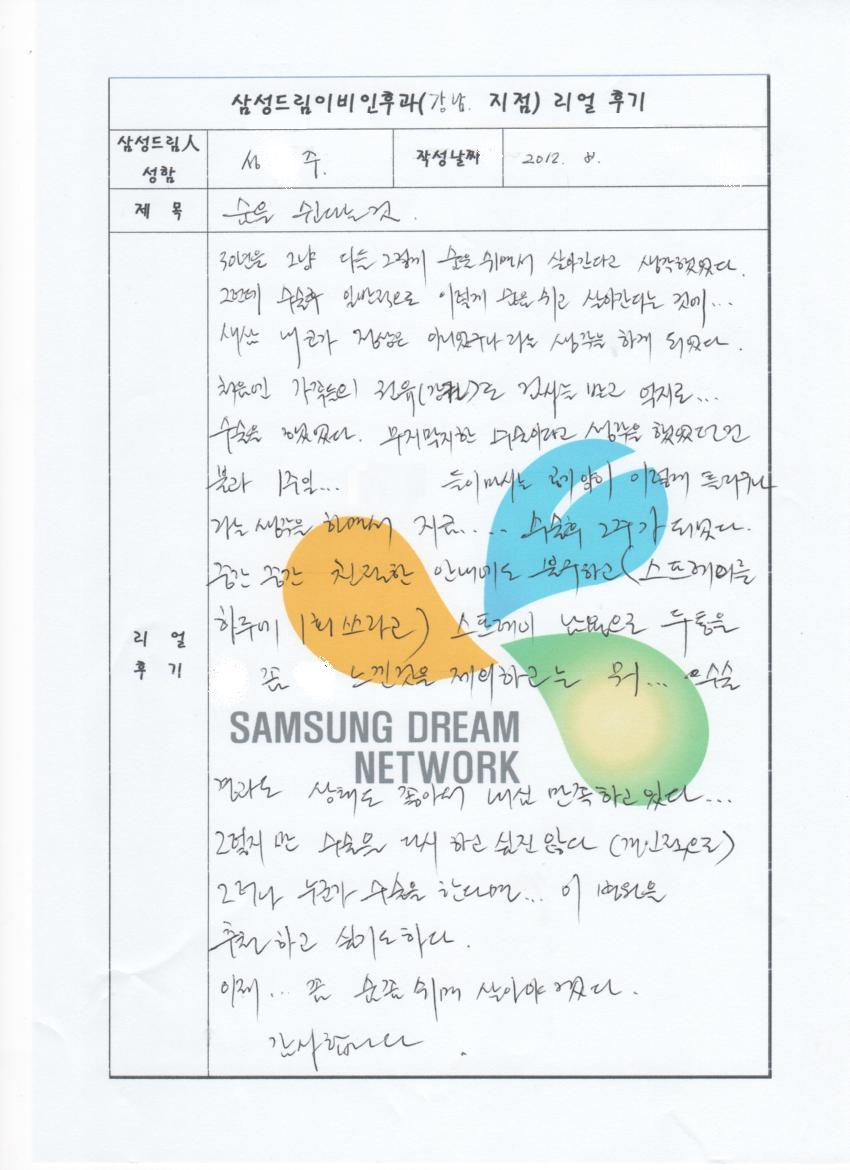 삼성드림이비인후과(강남. 지점) 리얼 후기
삼성드림人 성함
성 주.
작성날짜
2012. 8.
제 목
숨을 쉰다는것.
리 얼 후 기
30년을 그냥 다들 그렇게 숨을 쉬면서 살아간다고 생각했었다.
그런데 수술후 일반적으로 이렇게 숨을 쉬고 살아간다는 것에...
새삼 내 코가 정상은 아니었구나 라는 생각을 하게 되었다.
처음엔 가족들의 권유(강권)로 검사를 받고 억지로...
수술을 했었다. 무지막지한 생각을 했었던
불과 1주일... 들이마시는 공기 이렇게 틀리구나
라는 생각을 하면서 치료.... 수술후 2주가 되었다.
중간 중간 친절한 안내에도 불구하고(스프레이를
하루에 1회 쓰라고) 스프레이 남발으로 두통을
좀 느낀것을 제외하고는 뭐... 수술
SAMSUNG DREAM
NETWORK
결과도 상태도 좋아서 내심 만족하고 있다...
그렇지 만 수술을 다시 하고 싶진 않다 (개인적으로)
그러나 누군가 수술을 한다면... 이 병원을
추천 하고 싶기도하다.
이제... 좀 숨좀 쉬며 살아야 겠다.
감사합니다.